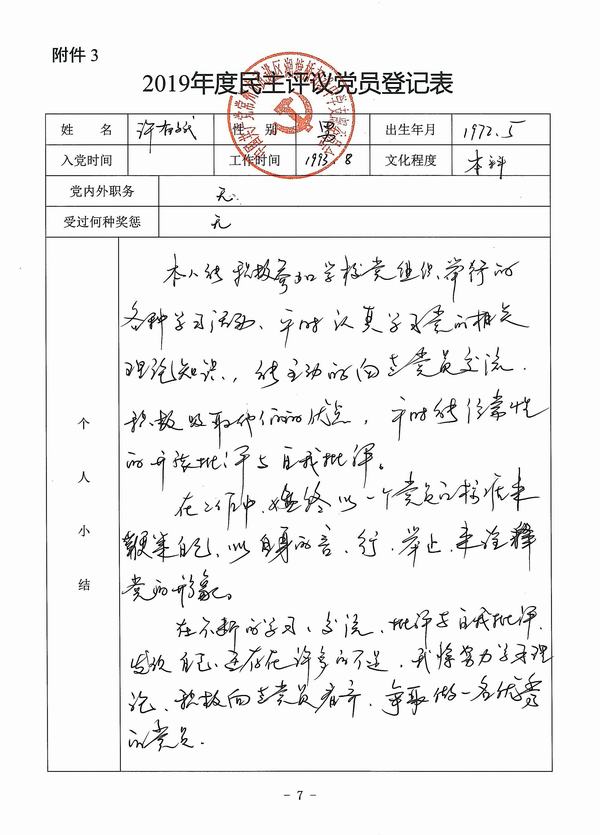 附件 3
2019年度民主评议党员登记表
姓 名 许 性 别 男 出生年月 1972.5
入党时间 工作时间 1993.8 文化程度 本科
党内外职务 无
受过何种奖惩 无
个人小结
本人能积极参加学校党组织举行的
各种学习活动、平时认真学习党的相关
理论知识，能主动的向老党员交流，
积极吸取他们的的优点，平时能经常性
的开张批评与自我批评。
在工作中，始终以一个党员的标准来
鞭策自己，以自身的言、行、举止，来诠释
党的形象。
在不断的学习、交流、批评与自我批评，
发现自己还存在许多的不足，我将努力学习理
论、积极向老党员看齐，争取做一名优秀
的党员.
- 7 -